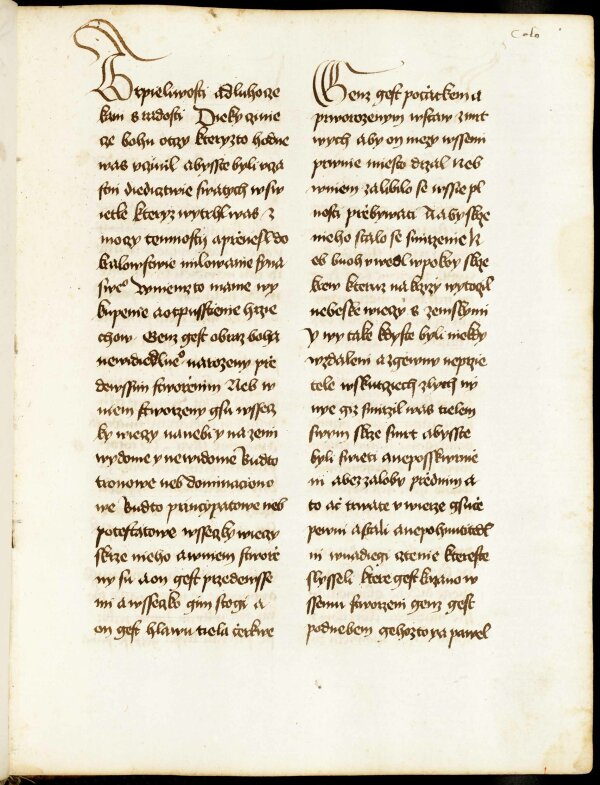 Colo
Trpieliwosti a dluhocze
kan s radosti Dieky czinie
cze bohu otczy kteryzto hodne
was vczinil abysste byli vcza
stni diedicztwie swatych w sw
ietle kteryz wytrhl was z
moczy temnostij a prenesl do
kralowstwie milowanie syna
sweo W niemzto mame wy
kupenie a otpusstienie hrzie
chow Genz gest obraz boha
newidiedlneo narozeny pre
dewssim stworenim Neb w
niem stworzeny gsu wssecz
ky wieczy na nebi y na zemi
wydome y newidome Budto
tronowe neb dominaciono
we Budto principatowe neb
potestatowe wsseczky wieczy
skrze nieho a w niem stwore
ny su a on gest przedewsse
mi a wsseczko gim stogi a
on gest hlawu tiela cerkwe
Genz gest pocatkem a
prworozenym wstaw z mrt
wych aby on mezy wssemi
prwnie miesto drzal Neb
w niem zalibilo se wssie pl
nosti prebywati A aby skrze
nieho stalo se smirzenie N
eb buoh vwedl w pokoy skrze
krew kteruz na krzizy wytoczil
nebeske wieczy s zemskymi
Y wy take kdyste byli niekdy
wzdaleni a zgewny neprzie
tele w skutciech zlych ny
nye giz smirzil was tielem
swym skrze smrt abysste
byli swieti a neposskwrnie
ni a bez zaloby prednim a
to ac trwate v wierze gsuce
pewni a stali a nepohnutedl
ni w nadiegi cztenie ktereste
slysseli ktere gest kazano w
ssemu stworzeni genz gest
pod nebem gehozto ya pawel